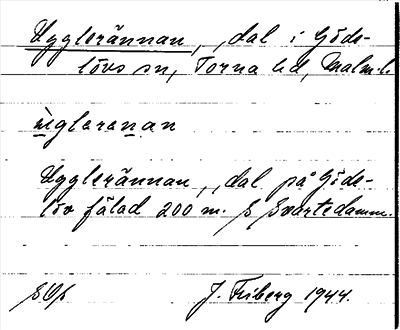 Ugglerännan, dal i Göde-
lövs sn, Torna hd, Malm. l.
ùglerenan
Ugglerännan, dal på Göde-
löv fälad 200 m. S Svartedamm.
J. Friberg 1944.